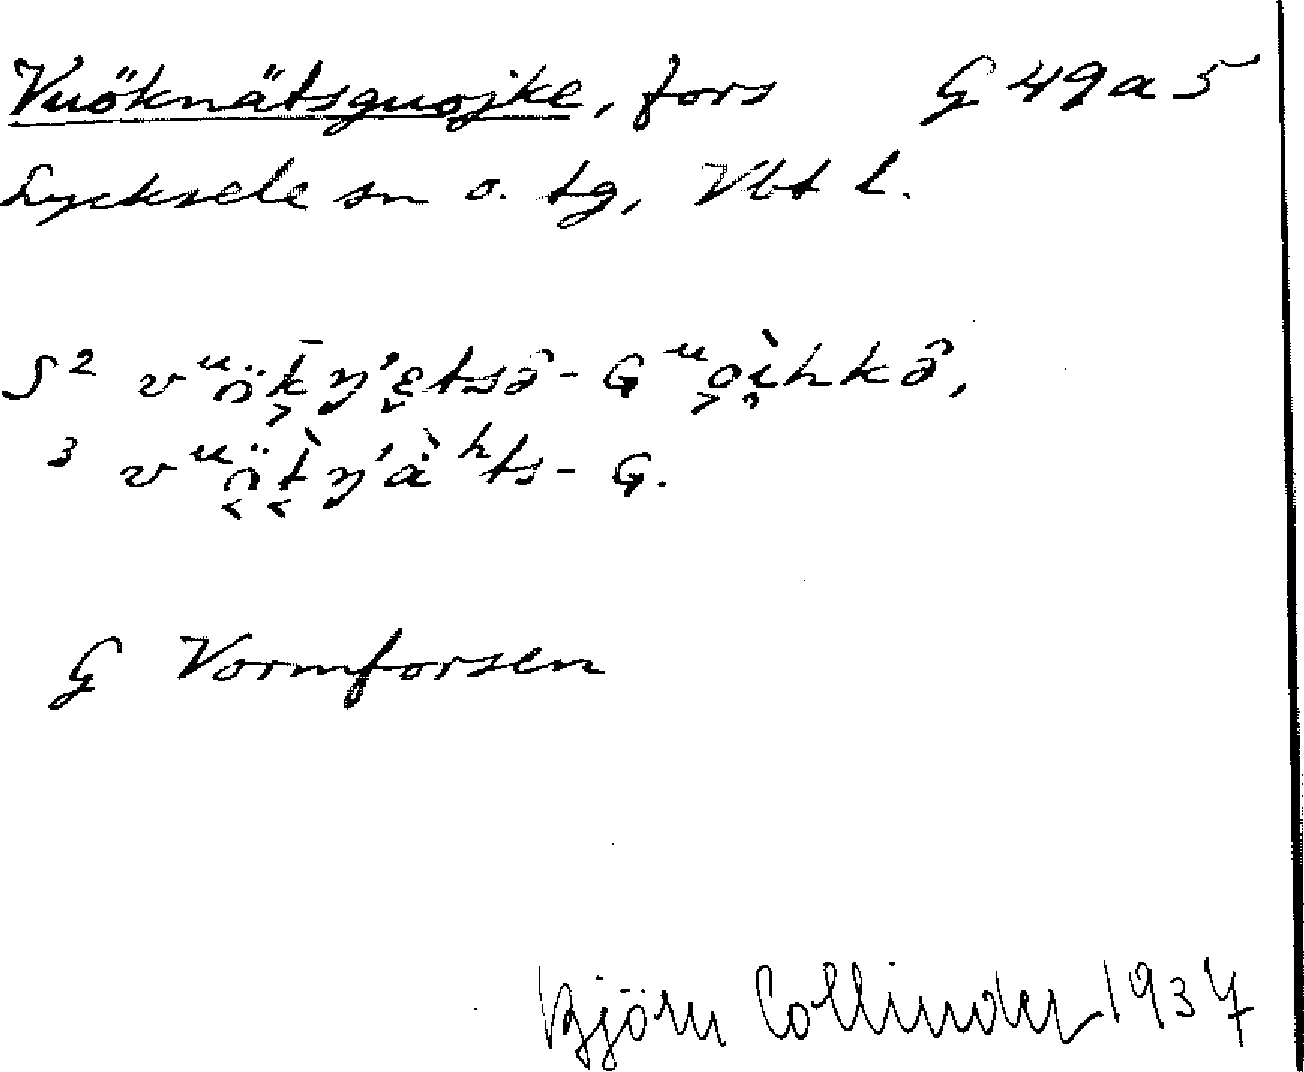 Vuöknätsguojke, fors G 49 a 5
Lycksele sn o. tg, Vbt l.
S² vᵘök̄ŋ'ętsə̂- Gᵘo̬ìhkə̂,
³ vᵘötŋ'àʰts- G.
G Vormforsen
Björn Collinder 1937